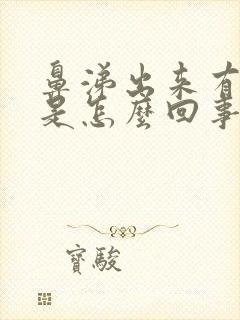 鼻涕出来有
是怎麽回事
寶駿